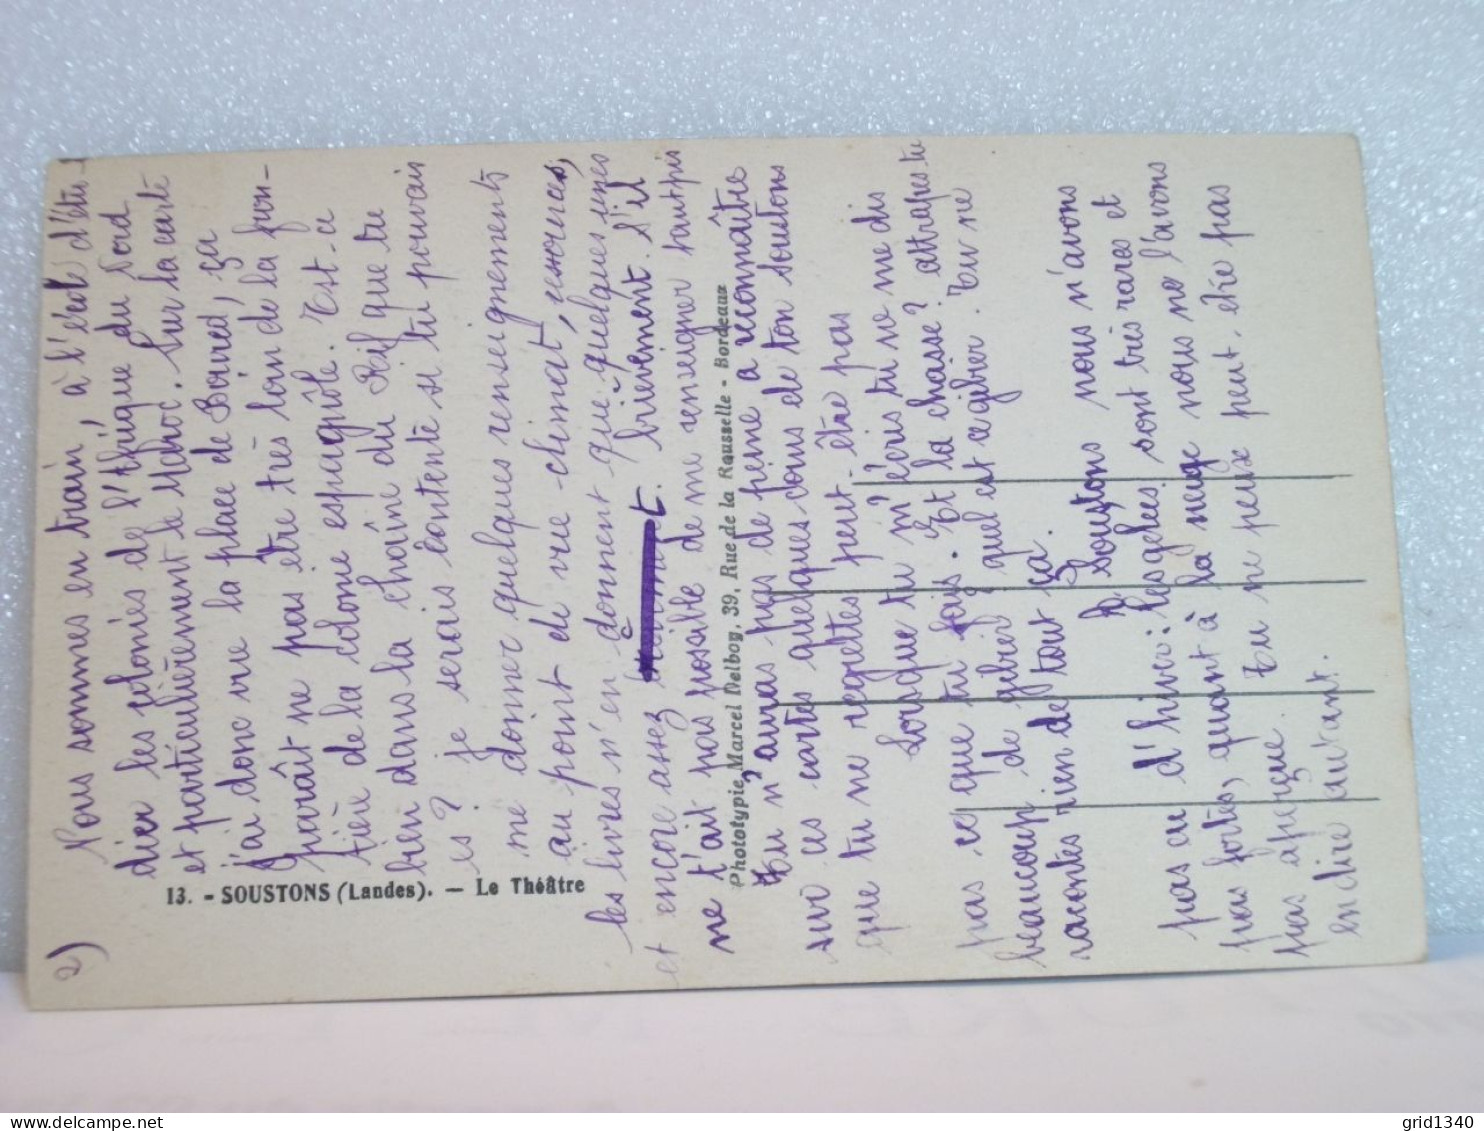 2)
Nous sommes en train, à l'école d'étu-
dier les colonies de l'Afrique du Nord
et particulièrement le Maroc. Sur la carte
j'ai donc vu la place de Boired, ça
paraît ne pas être très loin de la fron-
tière de la colonie espagnole. Est-ce
bien dans la chaîne du Reif que tu
es ? je serais contente si tu pouvais
me donner quelques renseignements
au point de vue climat, resources,
les livres n'en donnent que quelques unes
et encore assez brievement. S'il
ne t'ait pas possible de me renseigner tant pis
Tu n'auras pas de peine a reconnaître
sur ces cartes quelques coins de ton Souston
que tu ne regrettes peut-être pas
Lorsque tu m'écris tu ne me dis
pas ce que tu fais. Et la chasse ? attrapes-tu
beaucoup de gebier quel est ce gebier. Tu ne
racontes rien de tout ça.
A Soustons nous n'avons
pas eu d'hiver : les gelées sont très rares et
pas fortes, quant à la neige nous ne l'avons
pas aperçue. Tu ne peux peut-être pas
en dire autant.
13. - SOUSTONS (Landes). - Le Théâtre
Phototypie Marcel Delboy, 39, Rue de la Rousselle - Bordeaux
delcampe.net
grid1340